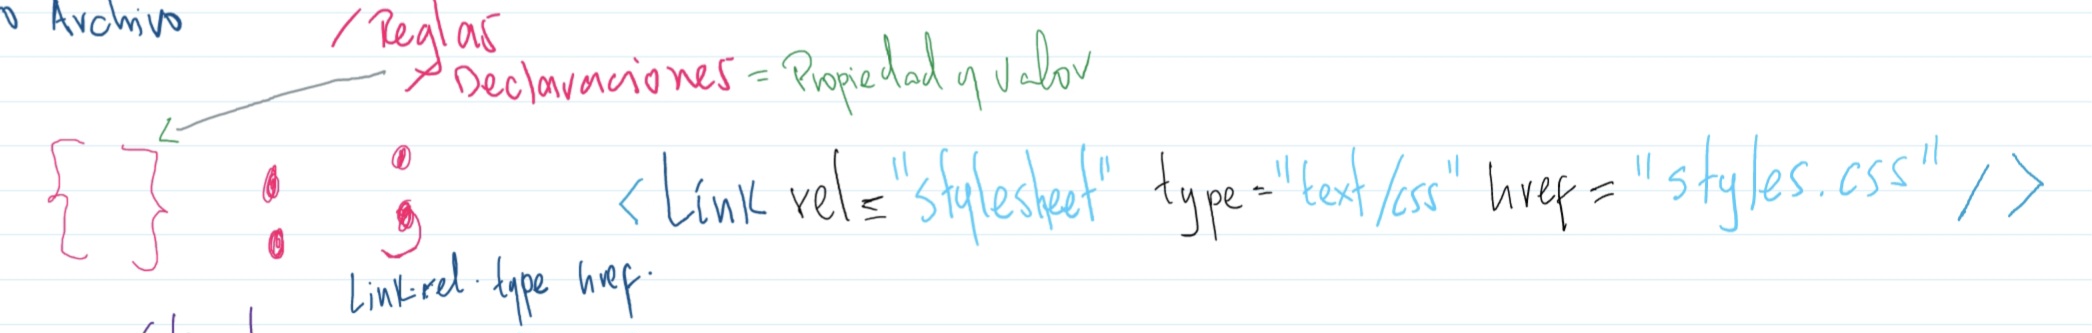 Archivo
/ Reglas
Declaraciones = Propiedad y valor
{ } : ;
<Link rel="stylesheet" type="text/css" href="styles.css" />
Link-rel. type href.